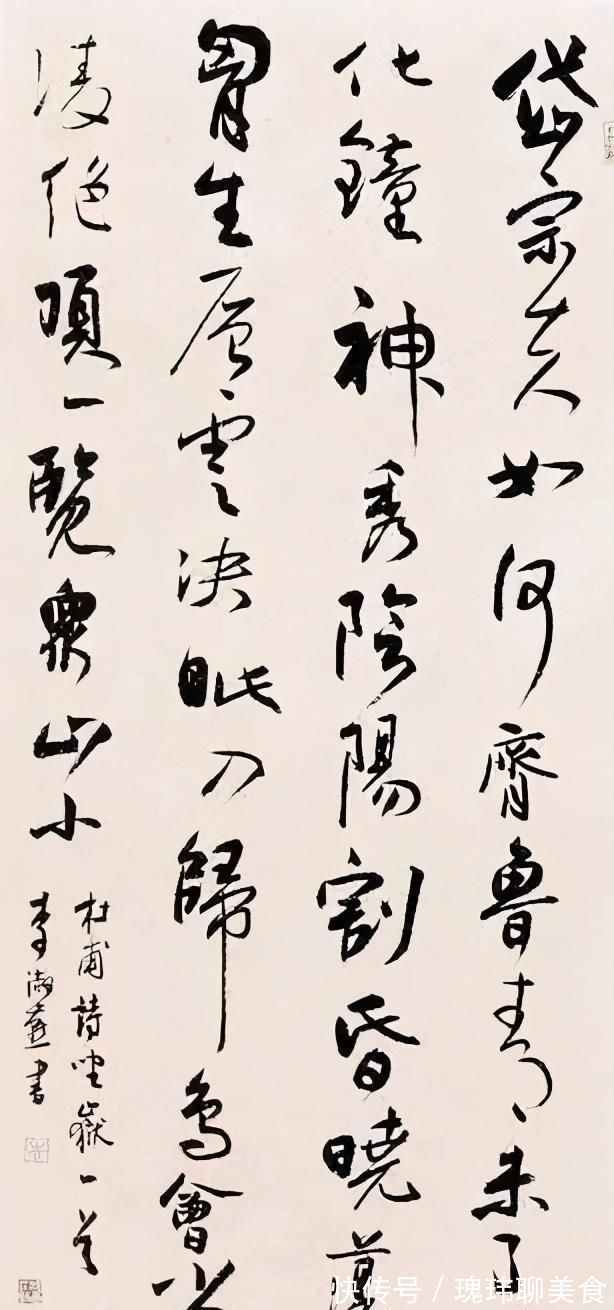 岱宗夫如何齊魯青未了
化鐘神秀陰陽割昏曉
胷生層雲決眦入歸鳥會
淩絕頂一覽衆山小
杜甫詩望嶽一首
李淑書
快传号／瑰玮聊美食